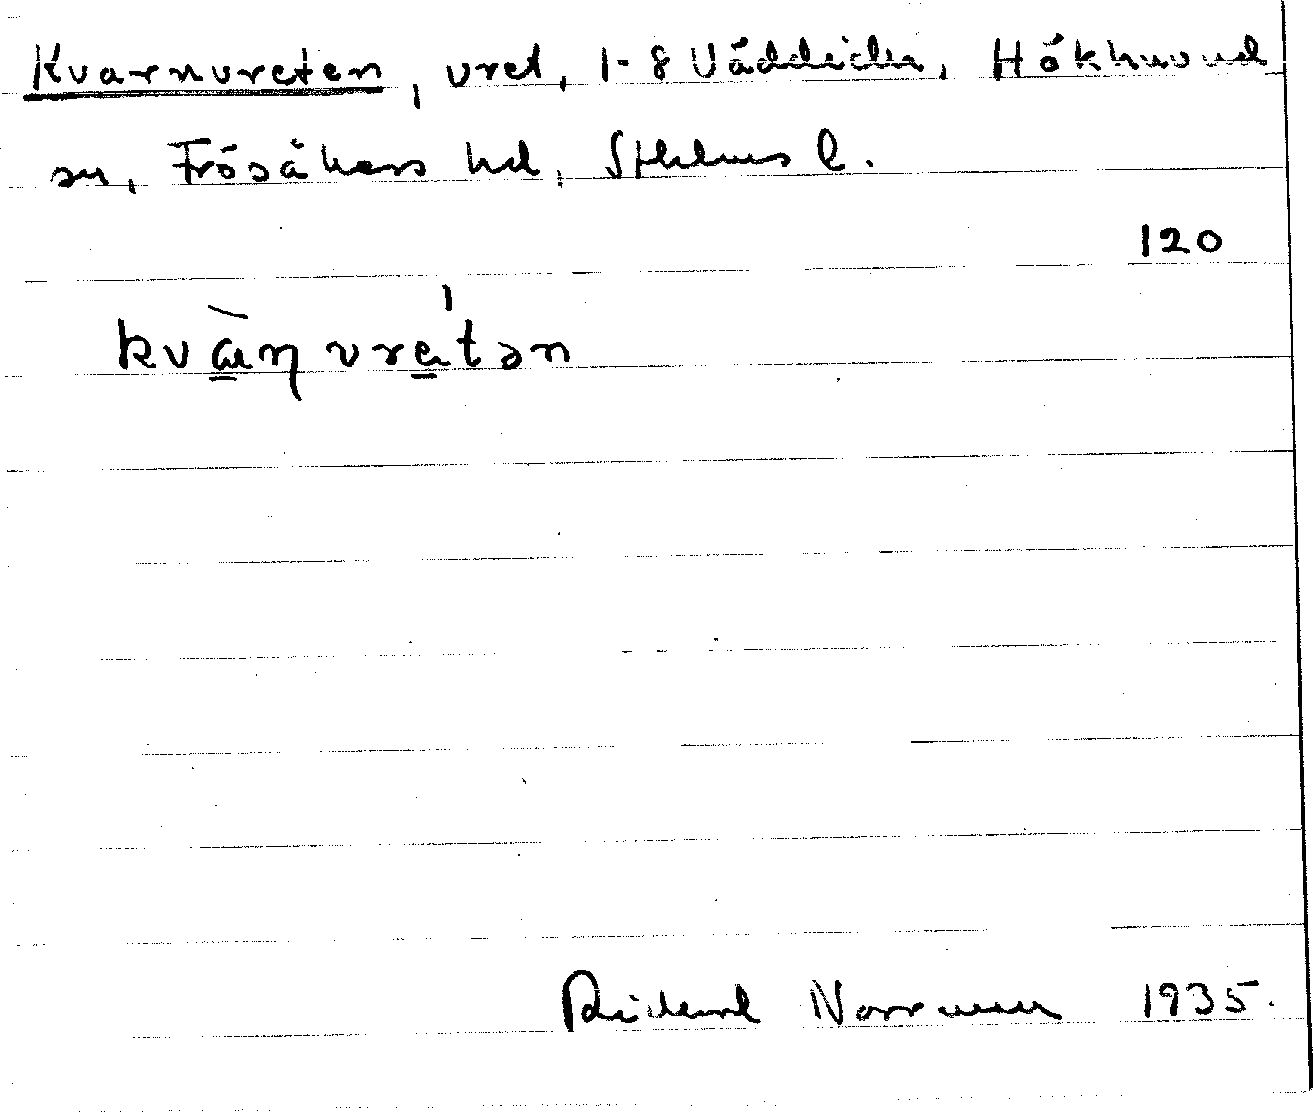 Kvarnvreten, vret, 1-8 Väddeiden, Hökhuvud
sn, Frösåkers hd, Sthlms l.
120
kvàṇvre̱tən
Rickard Norrman 1935.